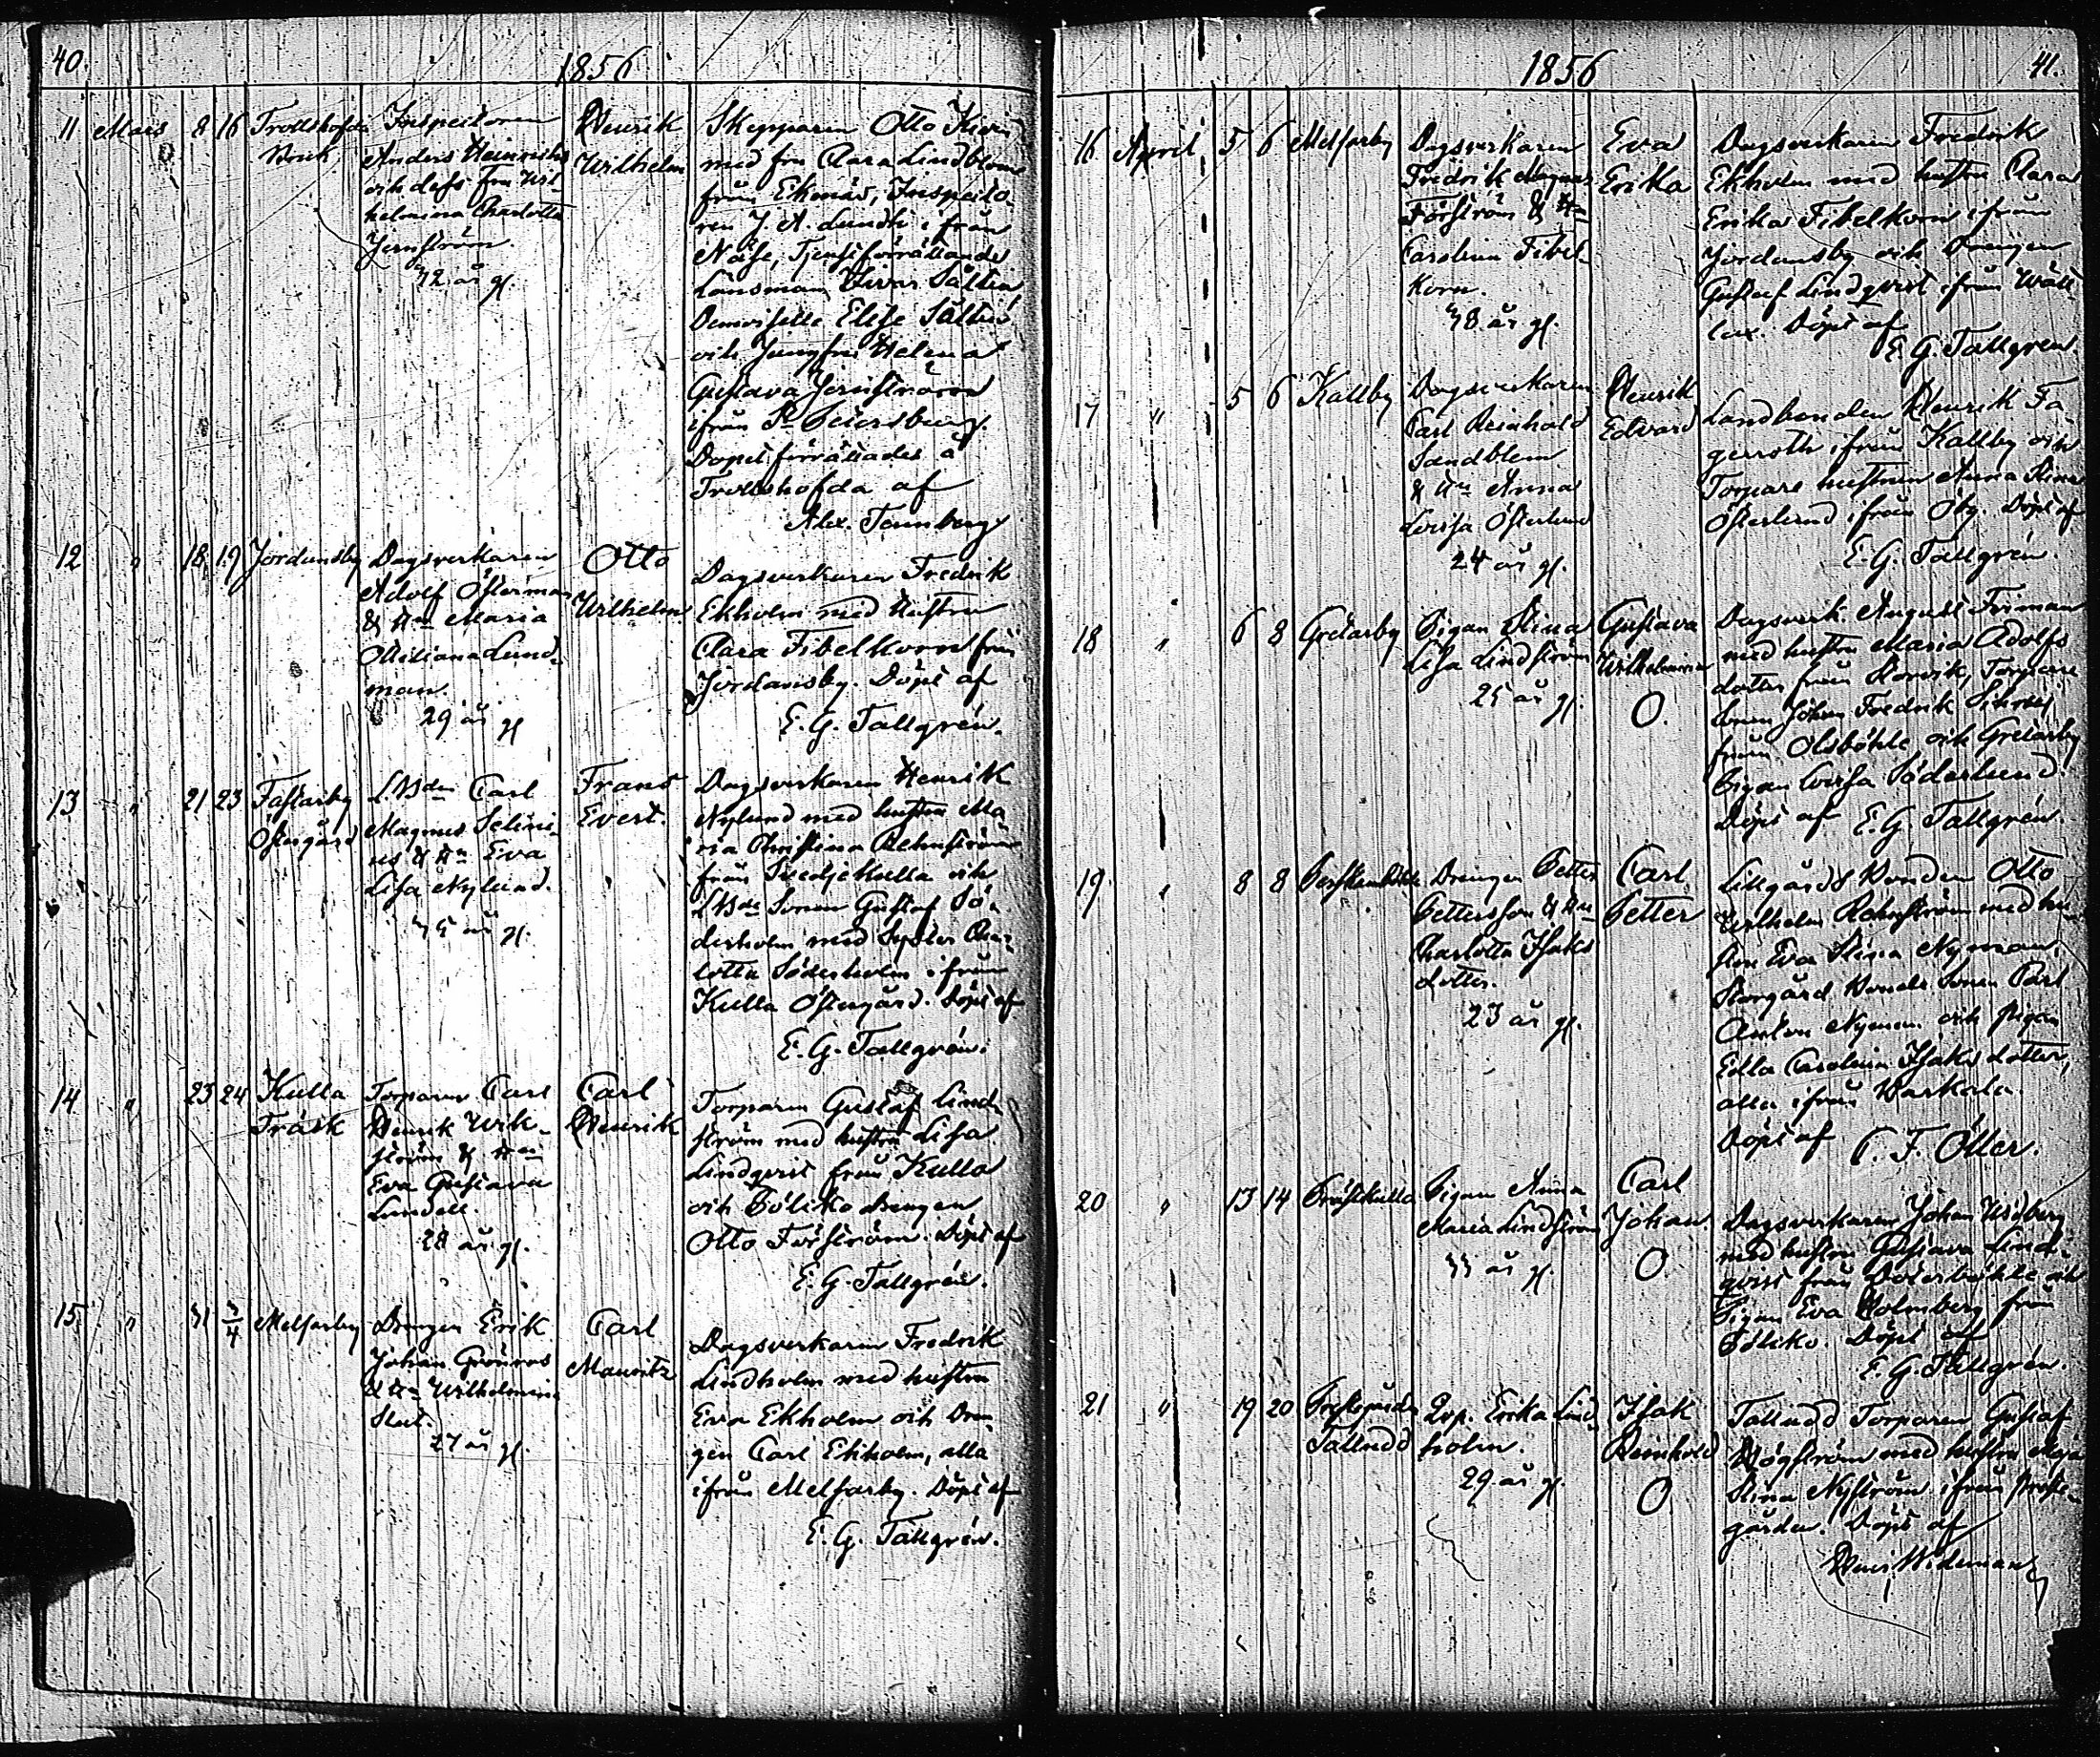 40.
1856
11 Mars 8 16 Trollshofda
Bruk
Inspectoren
Anders Heinrichs
och dess fru Wil-
helmina Charlotta
Jernström
32 år gl.
Henrik
Wilhelm
Skepparen Otto
med fru Clara Lindblom
från Ekenäs, Inspecto-
ren J. A. Lundh ifrån
Näse, Tjenstförrättande
Länsman Sältin
Demoiselle Elise Sältin
och Jungfru Helena
Gustava Jernström
ifrån St Petersburg.
Dopet förrättades å
Trollshofda af
Alex. Tennberg
12 " 18 19 Jordansby
Dagsverkaren
Adolf Österman
& Hu Maria
Lund-
man.
29 år gl
Otto
Wilhelm
Dagsverkaren Fredrik
Ekholm med hustru
Clara Fibelkorn från
Jordansby. Döpt af
E. G. Tallgrén.
13 " 21 23 Fastarby
Östergård
LBden Carl
Magnus Selini-
us & Hu Eva
Lisa Nylund.
35 år gl.
Frans
Evert.
Dagsverkaren Henrik
Nylund med hustru Ma-
ria Christina Rehnström
från Svedjekulla och
LBde Sonen Gustaf Sö-
derholm med Syster Char-
lotta Söderholm ifrån
Kulla Östergård. Döpt af
E. G. Tallgrén.
14 " 23 24 Kulla
Träsk
Torparen Carl
Henrik Wik-
ström & Hu
Eva Gustava
Lundell.
28 år gl.
Carl
Henrik
Torparen Gustaf Lind-
ström med hustru Lisa
Lindqvist från Kulla
och Bölsko drengen
Otto Forström. Döpt af
E. G. Tallgrén.
15 " 31 3/4 Melsarby
Drengen Erik
Johan Grönroos
& Hu Wilhelmina
Slut.
27 år gl
Carl
Mauritz
Dagsverkaren Fredrik
Lindholm med hustru
Eva Ekholm och Dren-
gen Carl Ekholm, alla
ifrån Melsarby. Döpt af
E. G. Tallgrén.
1856
41.
16 April 5 6 Melsarby
Dagsverkaren
Fredrik Magnus
Forström & Hu
Carolina Fibel-
korn.
38 år gl.
Eva
Erika
Dagsverkaren Fredrik
Ekholm med hustru Clara
Erika Fibelkorn ifrån
Jordansby och Drengen
Gustaf Lindqvist ifrån Wätt-
lax. Döpt af
E. G. Tallgren.
17 " 5 6 Kallby
Dagsverkaren
Carl Reinhold
Sandblom
& Hu Anna
Lovisa Österlund
24 år gl.
Henrik
Edvard
Landbonden Henrik Fa-
gerroth ifrån Kallby och
Torpare hustrun Anna Stina
Österlund ifrån Öby. Döpt af
E. G. Tallgrén.
18 " 6 8 Gretarby
Pigan Stina
Lisa Lindström
25 år gl.
Gustava
Wilhelmina
O.
Dagsverk. August Friman
med hustru Maria Adolfs
dotter från Storvik, Torpare
sonen Johan Fredrik
från Olsböhle och Gretarby
Pigan Lovisa Söderlund.
Döpt af E. G. Tallgrén
19 " 8 8
Drengen Petter
Pettersson & Hu
Charlotta Isaks
dotter.
23 år gl.
Carl
Petter
Lillgårds Bonden Otto
Wilhelm Rehnström med hu-
stru Eva Stina Nyman,
Storgård Bonde Sonen Carl
Anton Nyman och pigan
Edla Carolina Isaks dotter,
alla ifrån Warkala.
Döpt af C. F. Öller.
20 " 13 14 Prästkulla
Pigan Anna
Maria Lindström
33 år gl.
Carl
Johan
O
Dagsverkaren Johan Widberg
med hustru Gustava Lind-
qvist från Österböhle och
Pigan Eva Holmberg från
Bölsko. Döpt af
E. G. Tallgrén.
21 " 19 20
Tallnäs
Qvp. Erika Lind
holm.
29 år gl.
Isak
Reinhold
O
Tallnäs Torparen Gustaf
Högström med hustru Maja
Stina Nyström ifrån Prest-
gården. Döpt af
Henr. Wideman